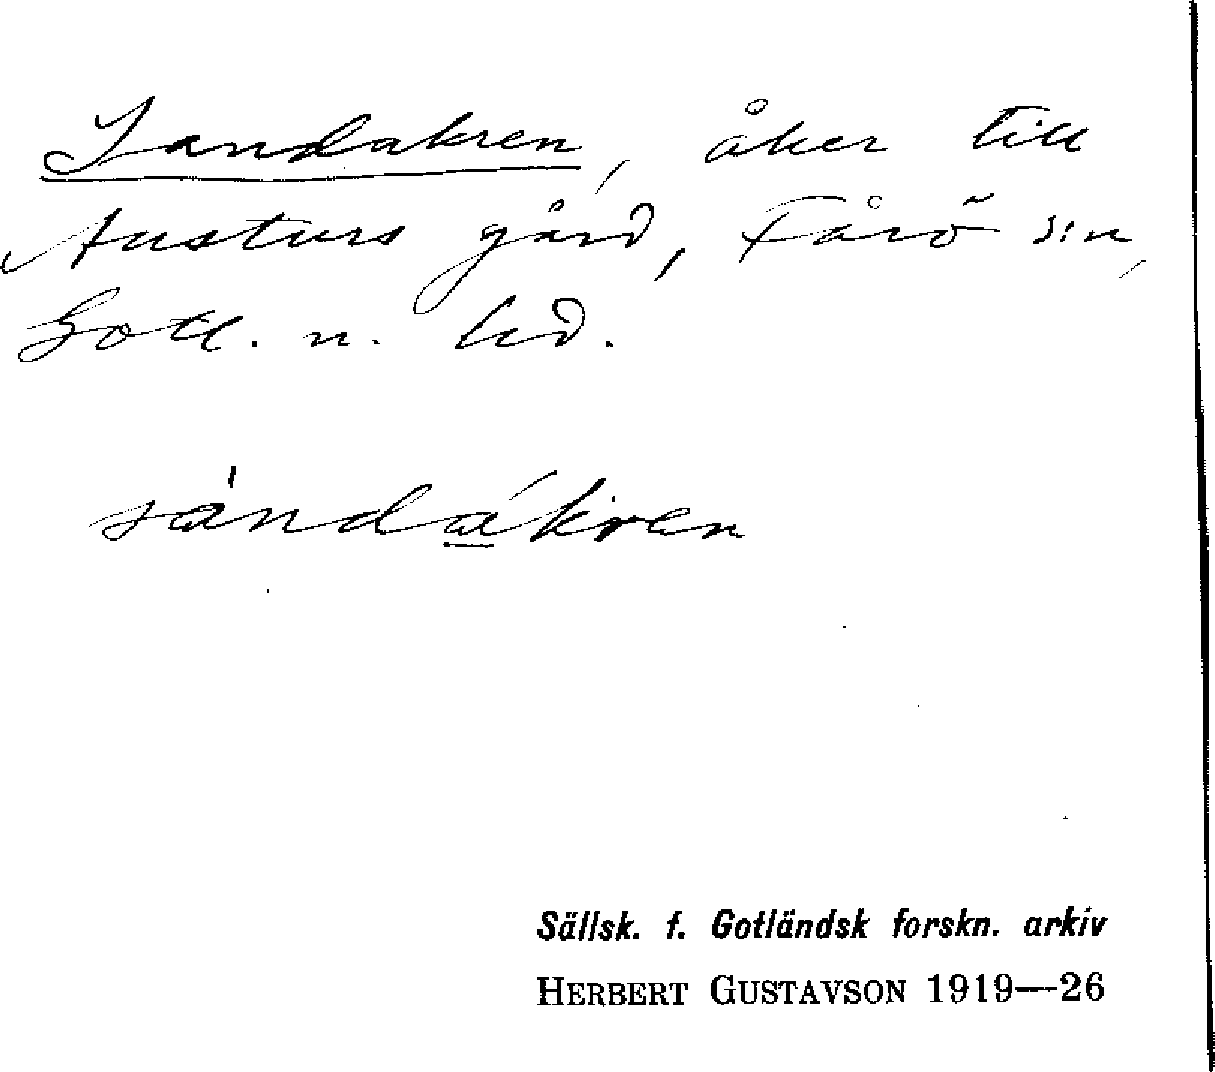 Sandakren, åker till
Austurs gård, Fårö s:n,
Gotl. n. hd.
sàndákren
Sällsk. f. Gotländsk forskn. arkiv
HERBERT GUSTAVSON 1919—26